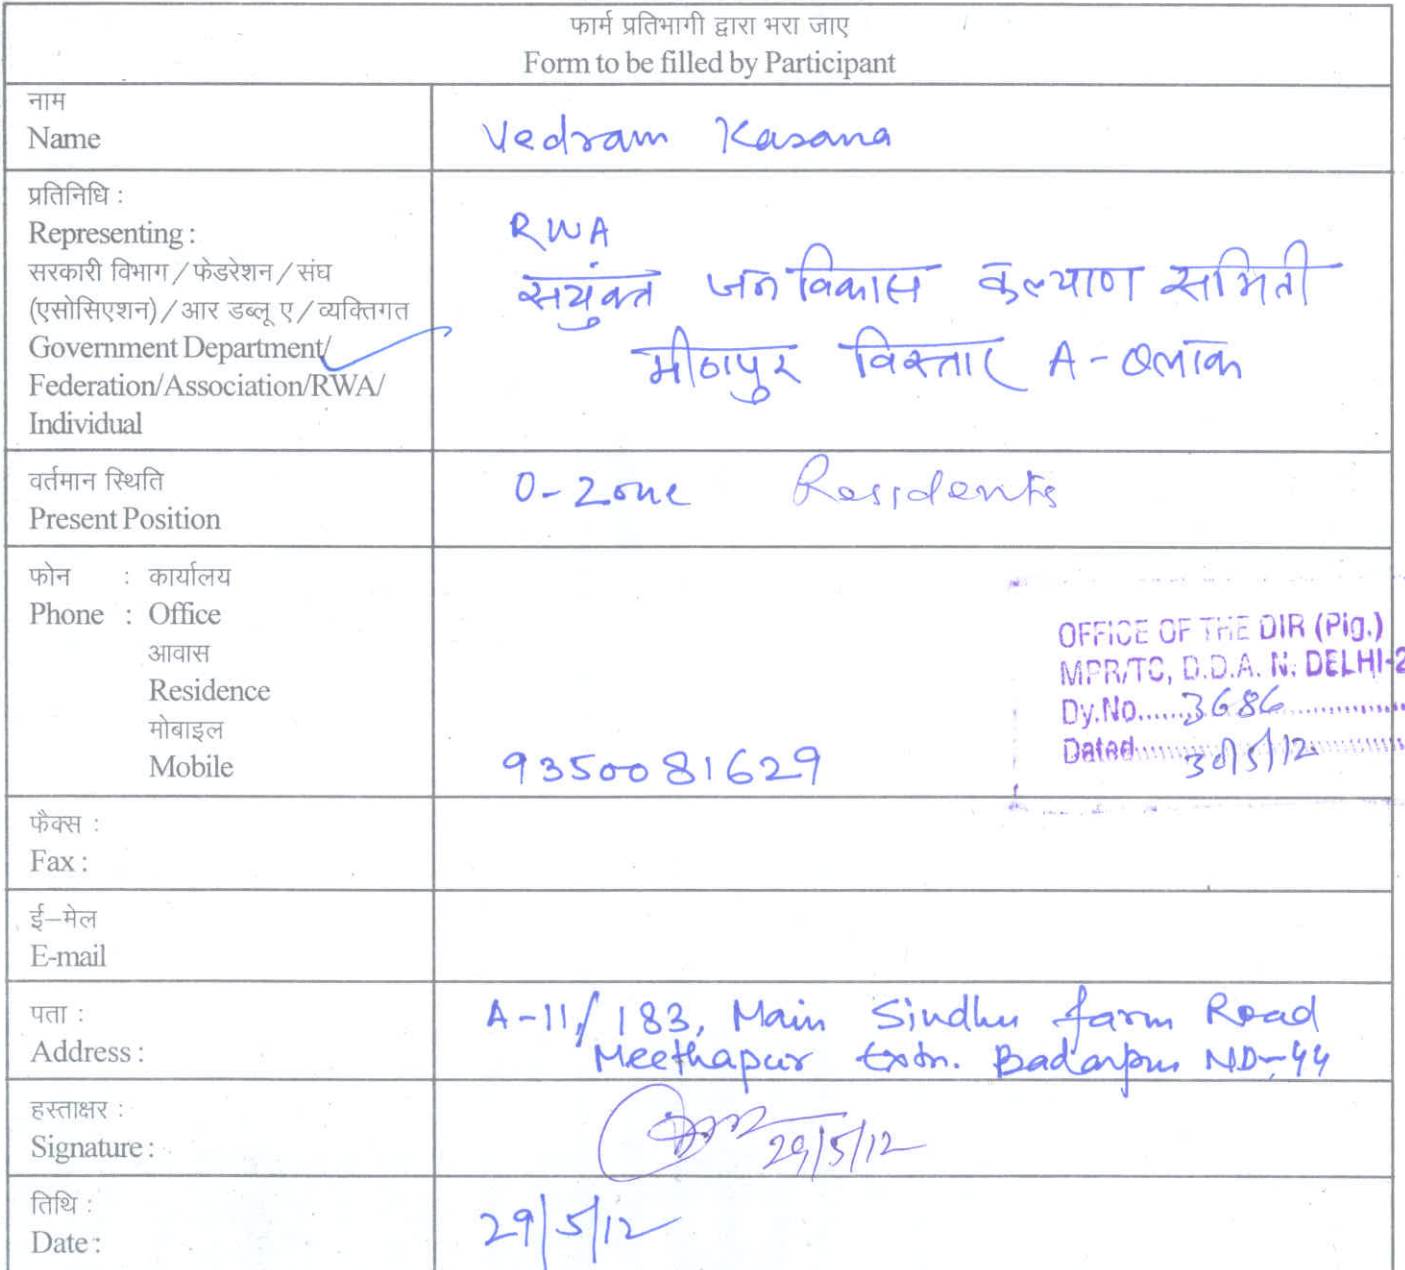 फार्म प्रतिभागी द्वारा भरा जाए
Form to be filled by Participant
नाम
Name
Vedram Kasana
प्रतिनिधि :
Representing :
सरकारी विभाग / फेडरेशन / संघ
(एसोसिएशन) / आर डब्लू ए / व्यक्तिगत
Government Department/
Federation/Association/RWA/
Individual
RWA
सयुंक्त जन विकास कल्याण समिती
मीठापुर विस्तार A-ब्लॉक
वर्तमान स्थिति
Present Position
O-Zone Residents
फोन : कार्यालय
Phone : Office
आवास
Residence
मोबाइल
Mobile
9350081629
OFFICE OF THE DIR (Plg.)
MPR/TC, D.D.A. N. DELHI-2
Dy.No......3686
Dated......30/5/12
फैक्स :
Fax :
ई–मेल
E-mail
पता :
Address :
A-11/183, Main Sindhu farm Road
Meethapur Extn. Badarpur ND-44
हस्ताक्षर :
Signature :
29/5/12
तिथि :
Date :
29/5/12